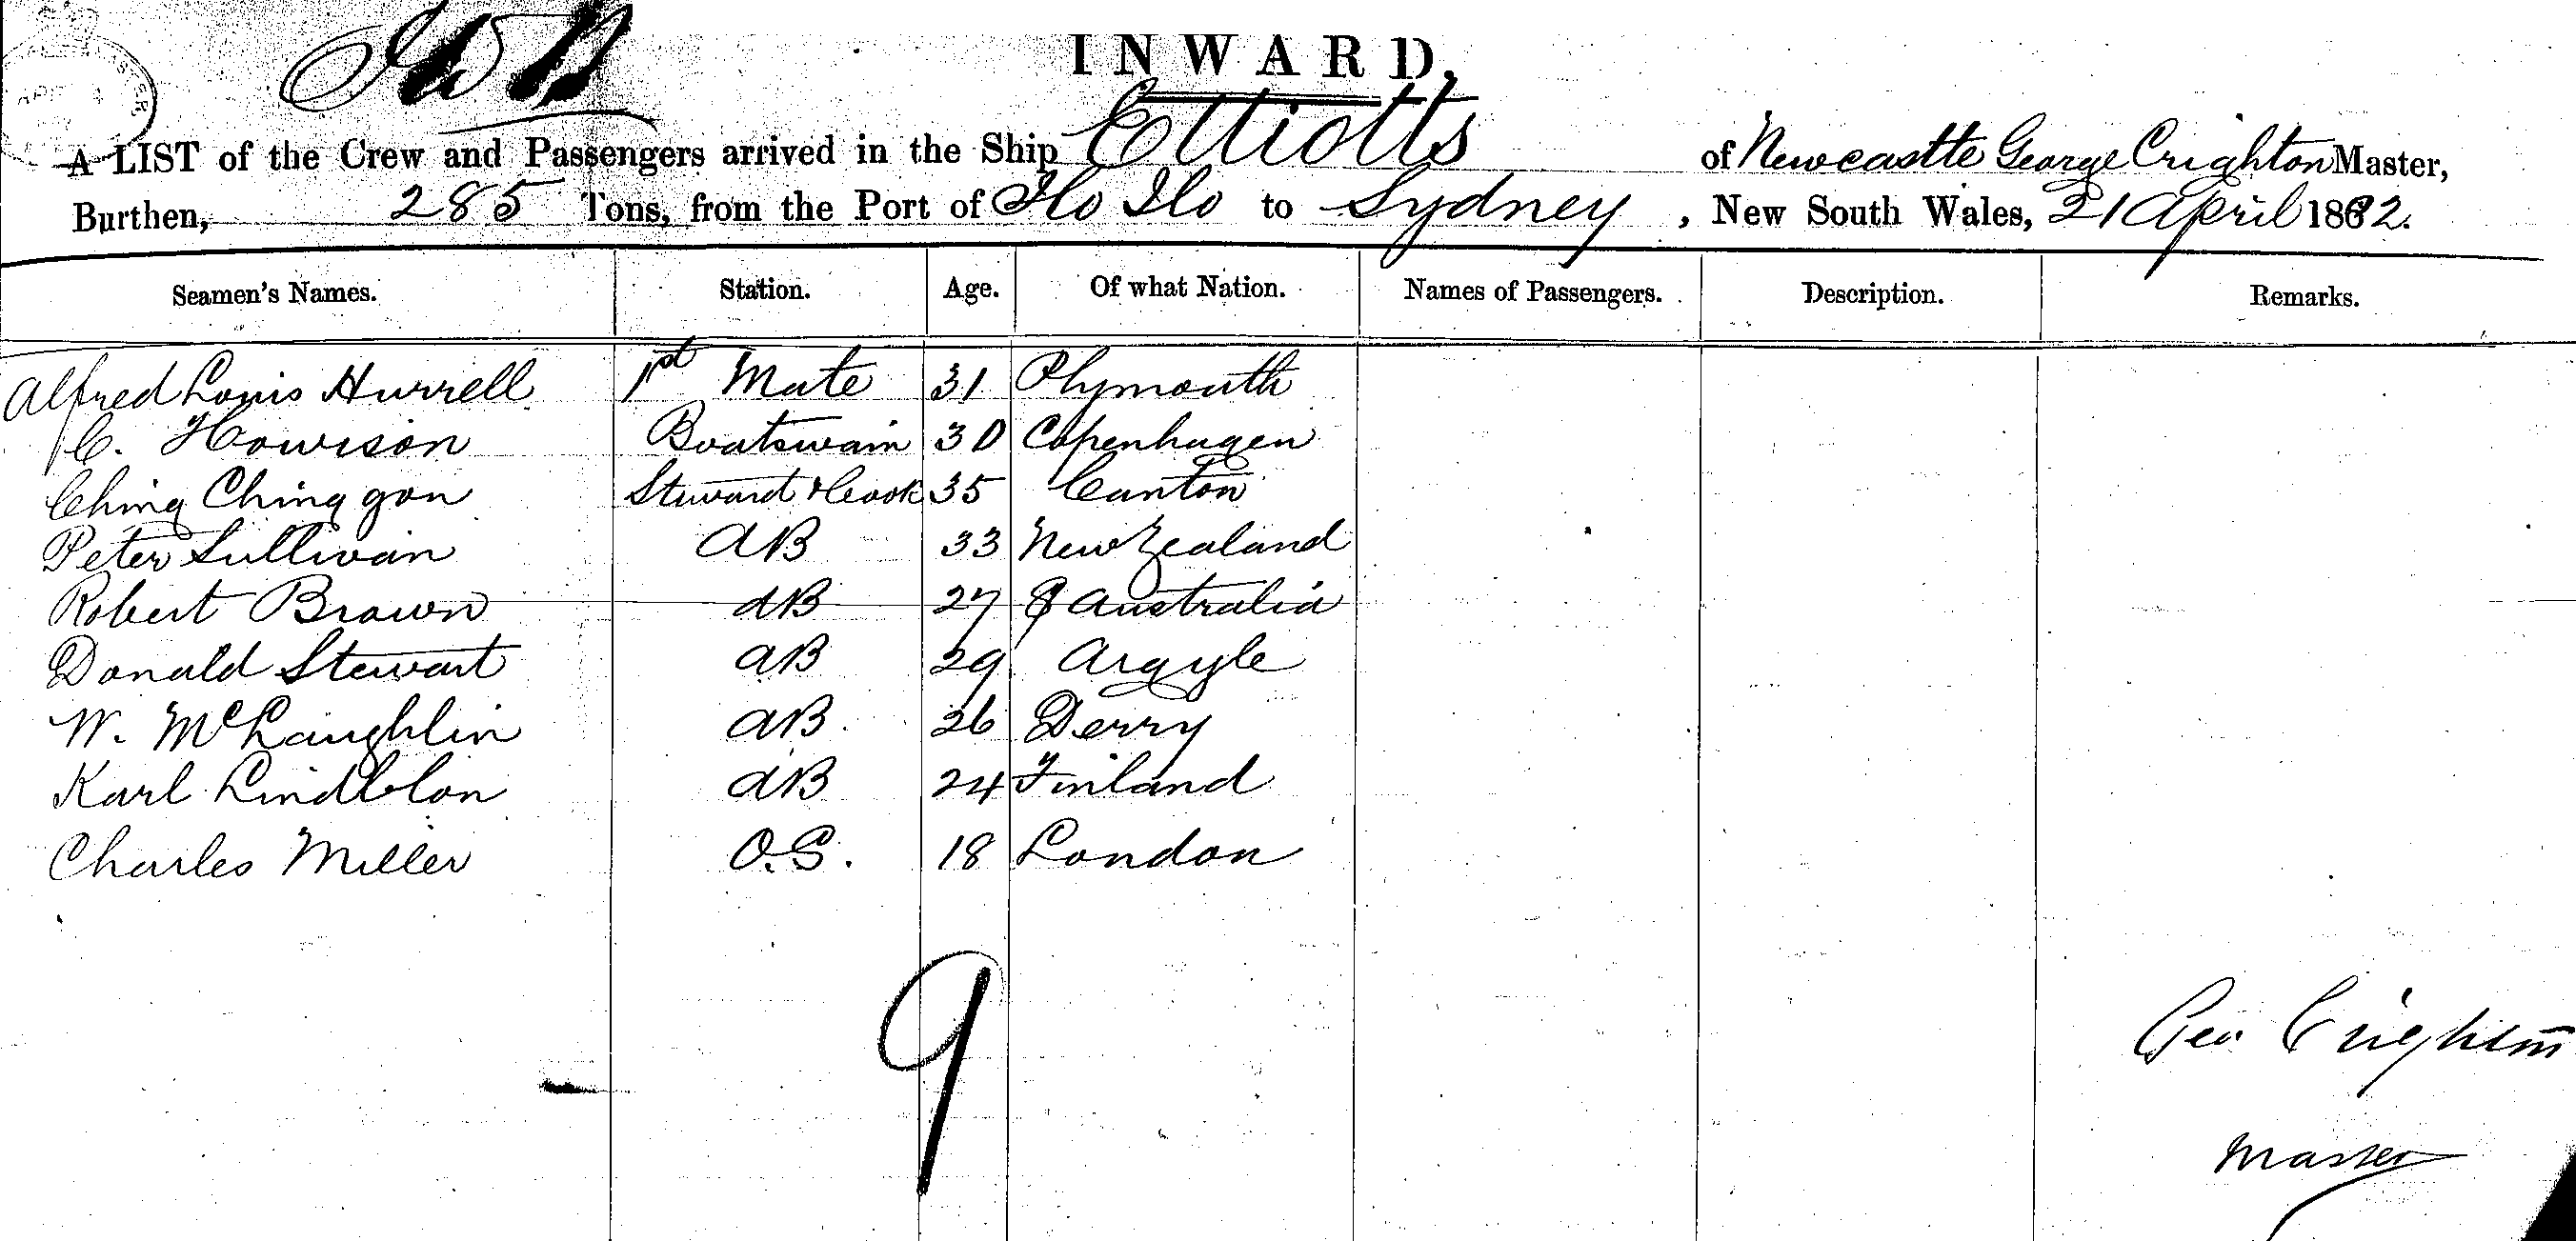 INWARD.
A LIST of the Crew and Passengers arrived in the Ship Elliotts of Newcastle George Crighton Master,
Burthen, 285 Tons, from the Port of Ilo Ilo to Sydney, New South Wales, 21 April 1882.
Seamen's Names. Station. Age. Of what Nation. Names of Passengers. Description. Remarks.
Alfred Louis Hurrell 1st Mate 31 Plymouth
C. Howison Boatswain 30 Copenhagen
Ching Ching gon Steward & Cook 35 Canton
Peter Sullivan AB 33 New Zealand
Robert Brown AB 27 Australia
Donald Stewart AB 29 Argyle
W. McLaughlin AB 26 Derry
Karl Lindblon AB 24 Finland
Charles Miller O.S. 18 London
9
Geo Crighton
Master